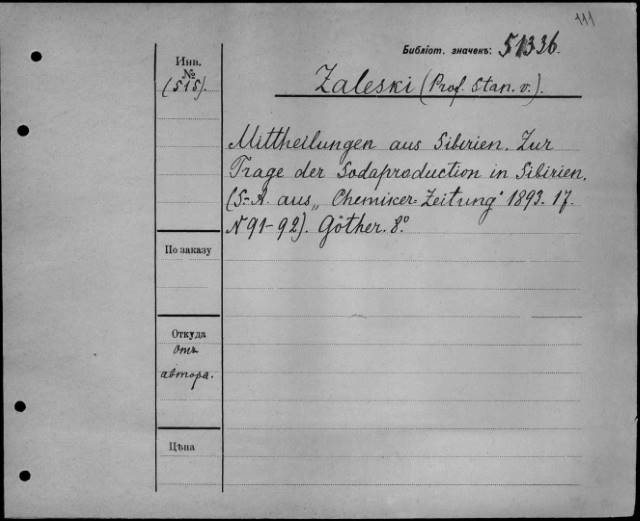 111
Библіот. значекъ: 51336.
Инв.
№
(515).
Zaleski (Prof. Stan. v.).
Mittheilungen aus Sibirien. Zur
Frage der Sodaproduction in Sibirien.
(S.-A. aus „Chemiker-Zeitung" 1893. 17.
N 91-92). Göther. 8°
По заказу
Откуда
отъ
автора.
Цѣна